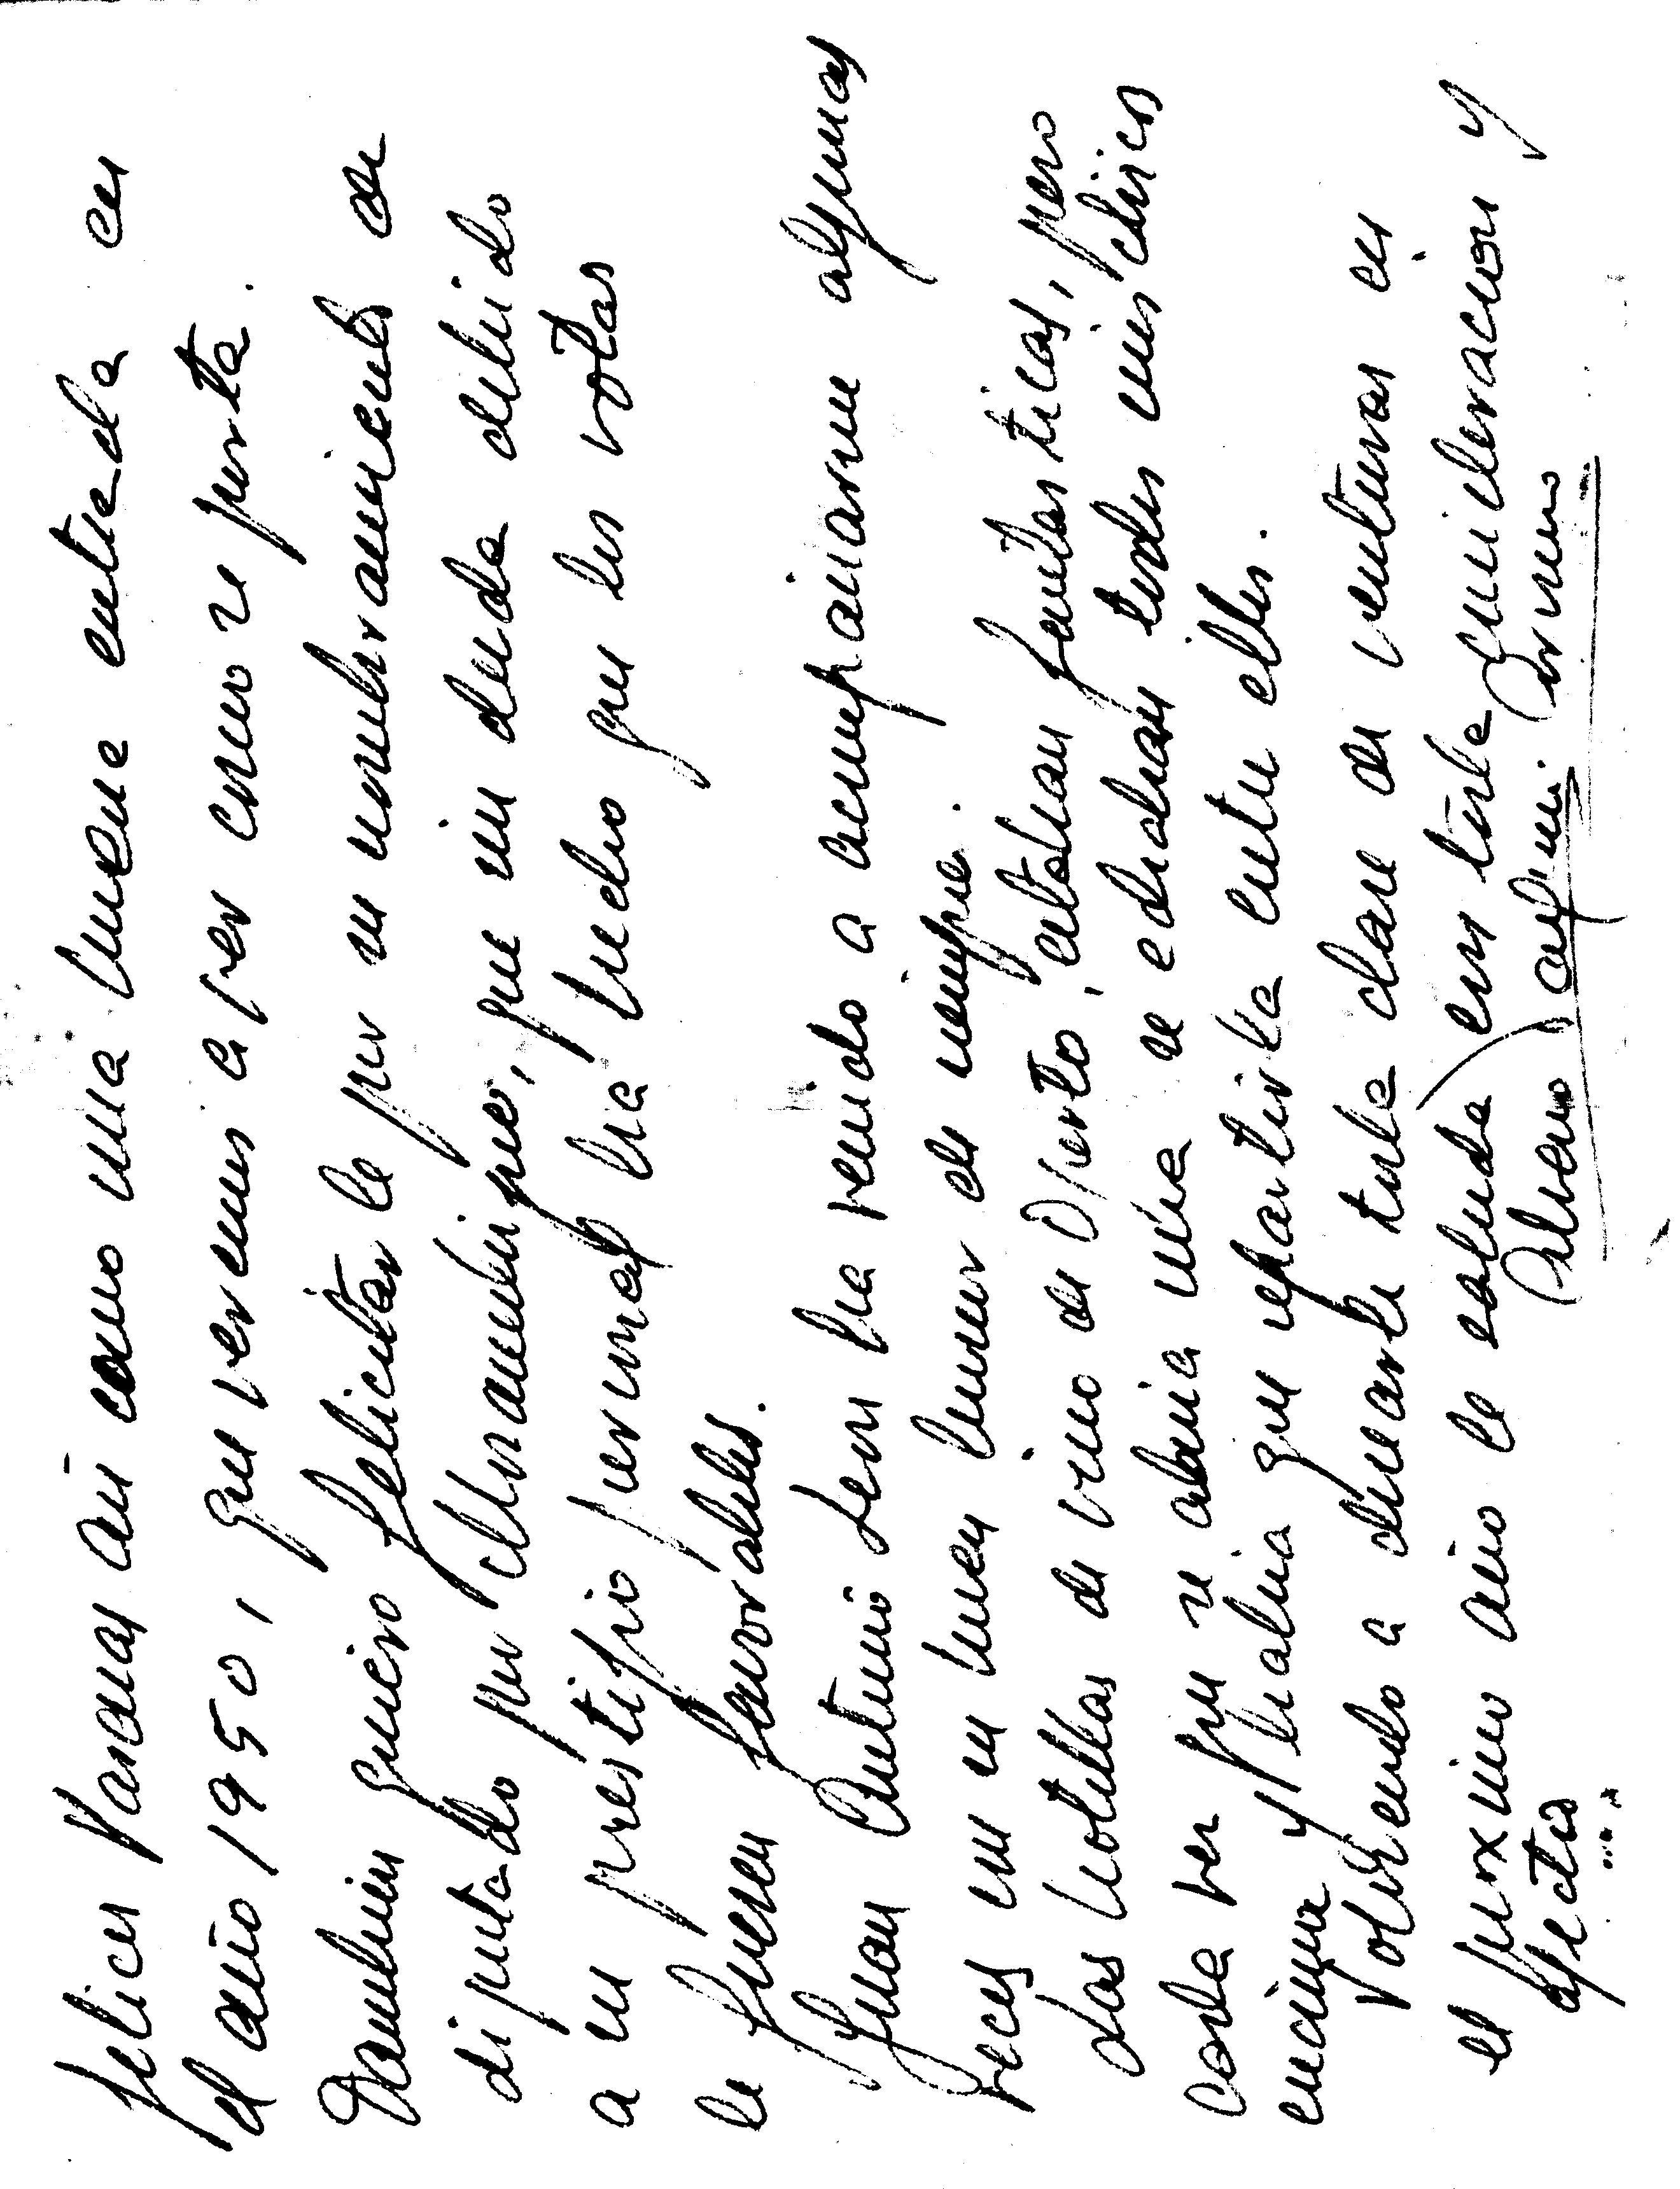 felices Pascuas así como una buena entrada en
el año 1950, que veremos a ver como se porta.
Tambien quiero felicitarle por su nombramiento de
diputado por el Uruméa, que sin duda debido
a su prestigio personal ha hecho que los votos
le fuesen favorables.
Juan Antonio Sen ha venido a acompañarme algunas
veces con su buen humor de siempre.
Las botellas de vino de Oporto, estaban fantásticas, pero
cada vez que se abria una se echaban todos mis chicos
encima y habia que repartirla entre ellos.
Volviendo a desearle toda clase de venturas en
el proximo año le saluda con toda consideracion y
afecto